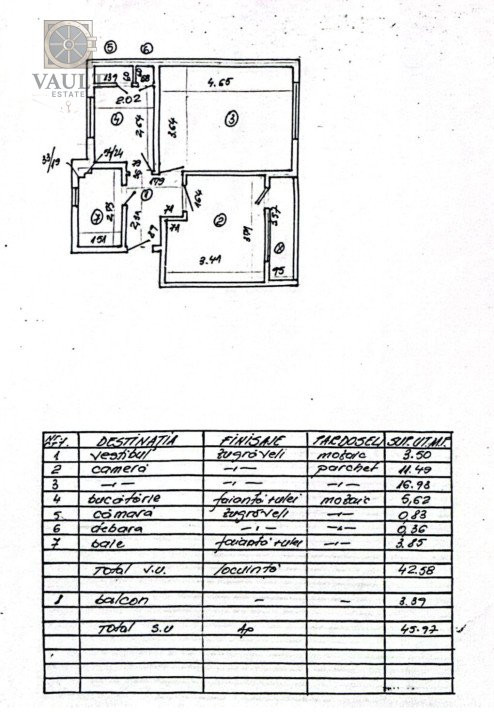 VAULT
ESTATE
5 6
139 88
2.02
4.65
4
2,64
3.64
3
179
1
164
2,31
151
7
74
74
2
3.57
3.41
95
8
DESTINATIA FINISAJE PARDOSELI SUP.UT.MP.
1 vestibul zugrăveli mozaic 3.50
2 cameră —"— parchet 11.49
3 —"— —"— —"— 16.93
4 bucătărie faianță+ulei mozaic 5,62
5 cămară zugrăveli —"— 0,83
6 debara —"— —"— 0,36
7 baie faianță+ulei —"— 3.85
Total S.U. locuință 42.58
8 balcon — — 3.39
Total S.U Ap 45.97